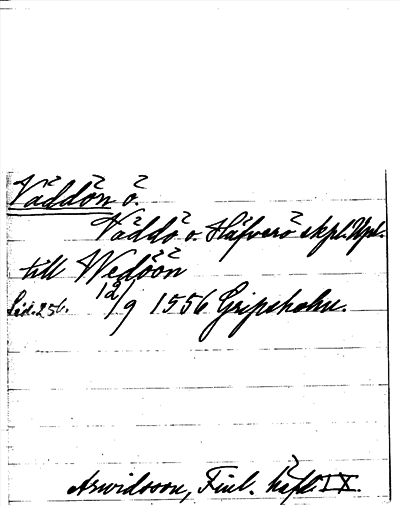 Väddön ö.
Väddö o. Häfverö skpl. Upl.
till Wedöön
Sid. 256. 12/9 1556 Gripsholm.
Arwidsson, Finl. häft. IX.